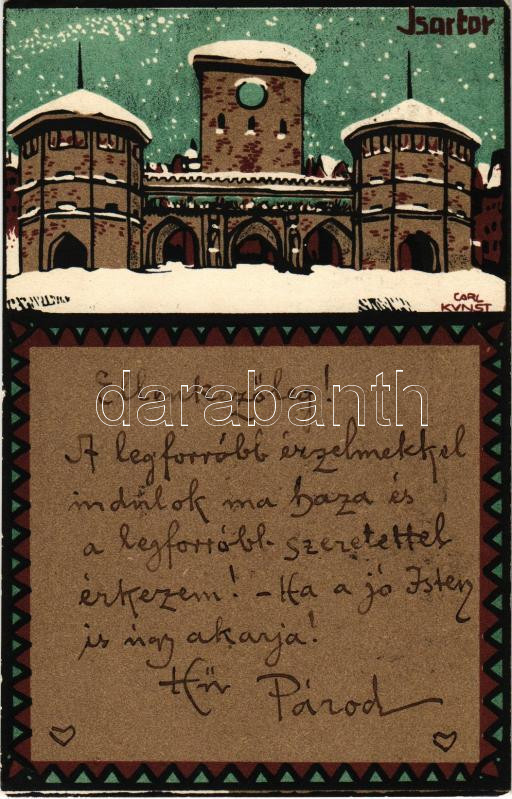 Isartor
CARL
KVNST
Ellenkezőleg!
darabanth
A legforróbb érzelmekkel
indúlok ma haza és
a legforróbb szeretettel
érkezem! - Ha a jó Isten
is úgy akarja!
Hű Párod